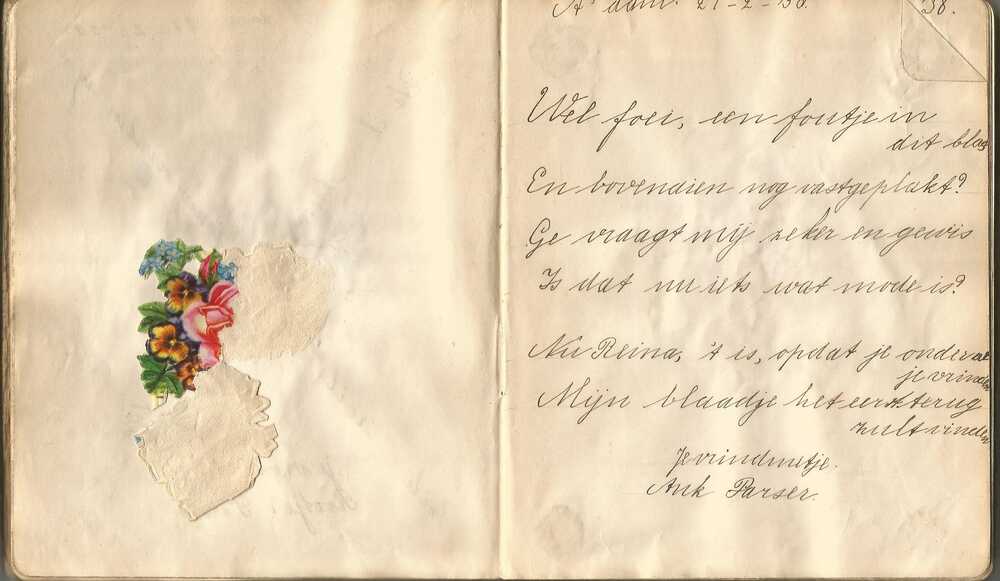 A'dam. 21-2-'38.
Wel foei, een foutje in
dit blad
En bovendien nog vastgeplakt?
Ge vraagt mij zeker en gewis
Is dat nu iets wat mode is?
Nu Reina, 't is, opdat je onder al
je vrinden
Mijn blaadje het eerst terug
zult vinden
Je vrindinnetje.
Ank Parser.